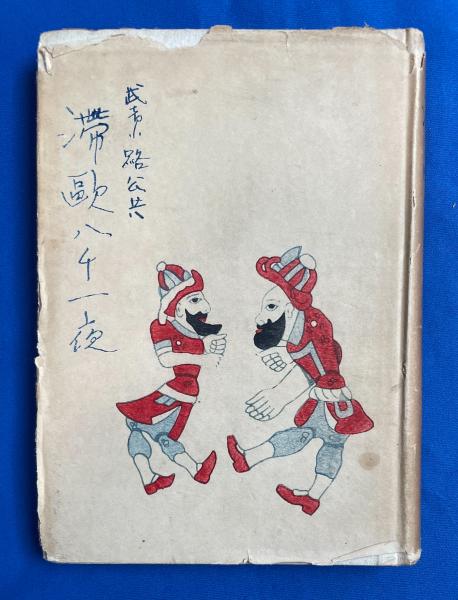 武者小路公共
滞歐八千一夜